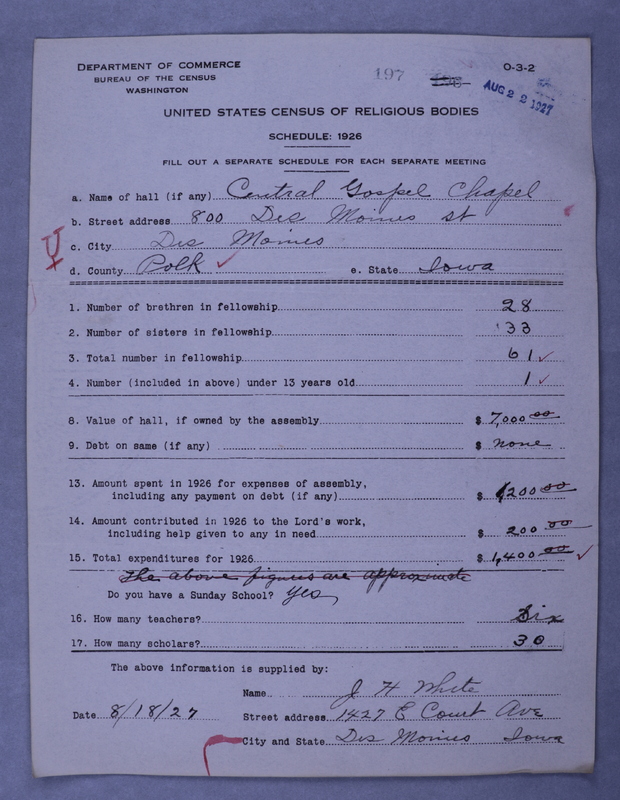 DEPARTMENT OF COMMERCE
BUREAU OF THE CENSUS
WASHINGTON
197
O-3-2
AUG 22 1927
UNITED STATES CENSUS OF RELIGIOUS BODIES
SCHEDULE: 1926
FILL OUT A SEPARATE SCHEDULE FOR EACH SEPARATE MEETING
a. Name of hall (if any) Central Gospel Chapel
b. Street address 800 Des Moines st
c. City Des Moines
d. County Polk e. State Iowa
1. Number of brethren in fellowship 28
2. Number of sisters in fellowship 33
3. Total number in fellowship 61
4. Number (included in above) under 13 years old 1
8. Value of hall, if owned by the assembly $ 7,000 00
9. Debt on same (if any) $ none
13. Amount spent in 1926 for expenses of assembly,
including any payment on debt (if any) $ 1200 00
14. Amount contributed in 1926 to the Lord's work,
including help given to any in need $ 200 00
15. Total expenditures for 1926 $ 1,400 00
The above figures are approximate
Do you have a Sunday School? Yes
16. How many teachers? Six
17. How many scholars? 30
The above information is supplied by:
Name J H White
Date 8/18/27 Street address 1427 E Court Ave
City and State Des Moines Iowa